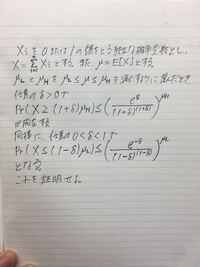 Xiを0または1の値をとる独立な確率変数とし、
X = Σ_{i=1}^{n} Xiとする。また、μ=E[X]とする。
μLとμHをμL≤μ≤μHを満たすように選んだとき
任意のδ>0で
Pr(X≥(1+δ)μH)≤(e^δ/(1+δ)^(1+δ))^μH
が成立する
同様に、任意の0<δ<1で
Pr(X≤(1-δ)μL)≤(e^-δ/(1-δ)^(1-δ))^μL
となる。
これを証明せよ。